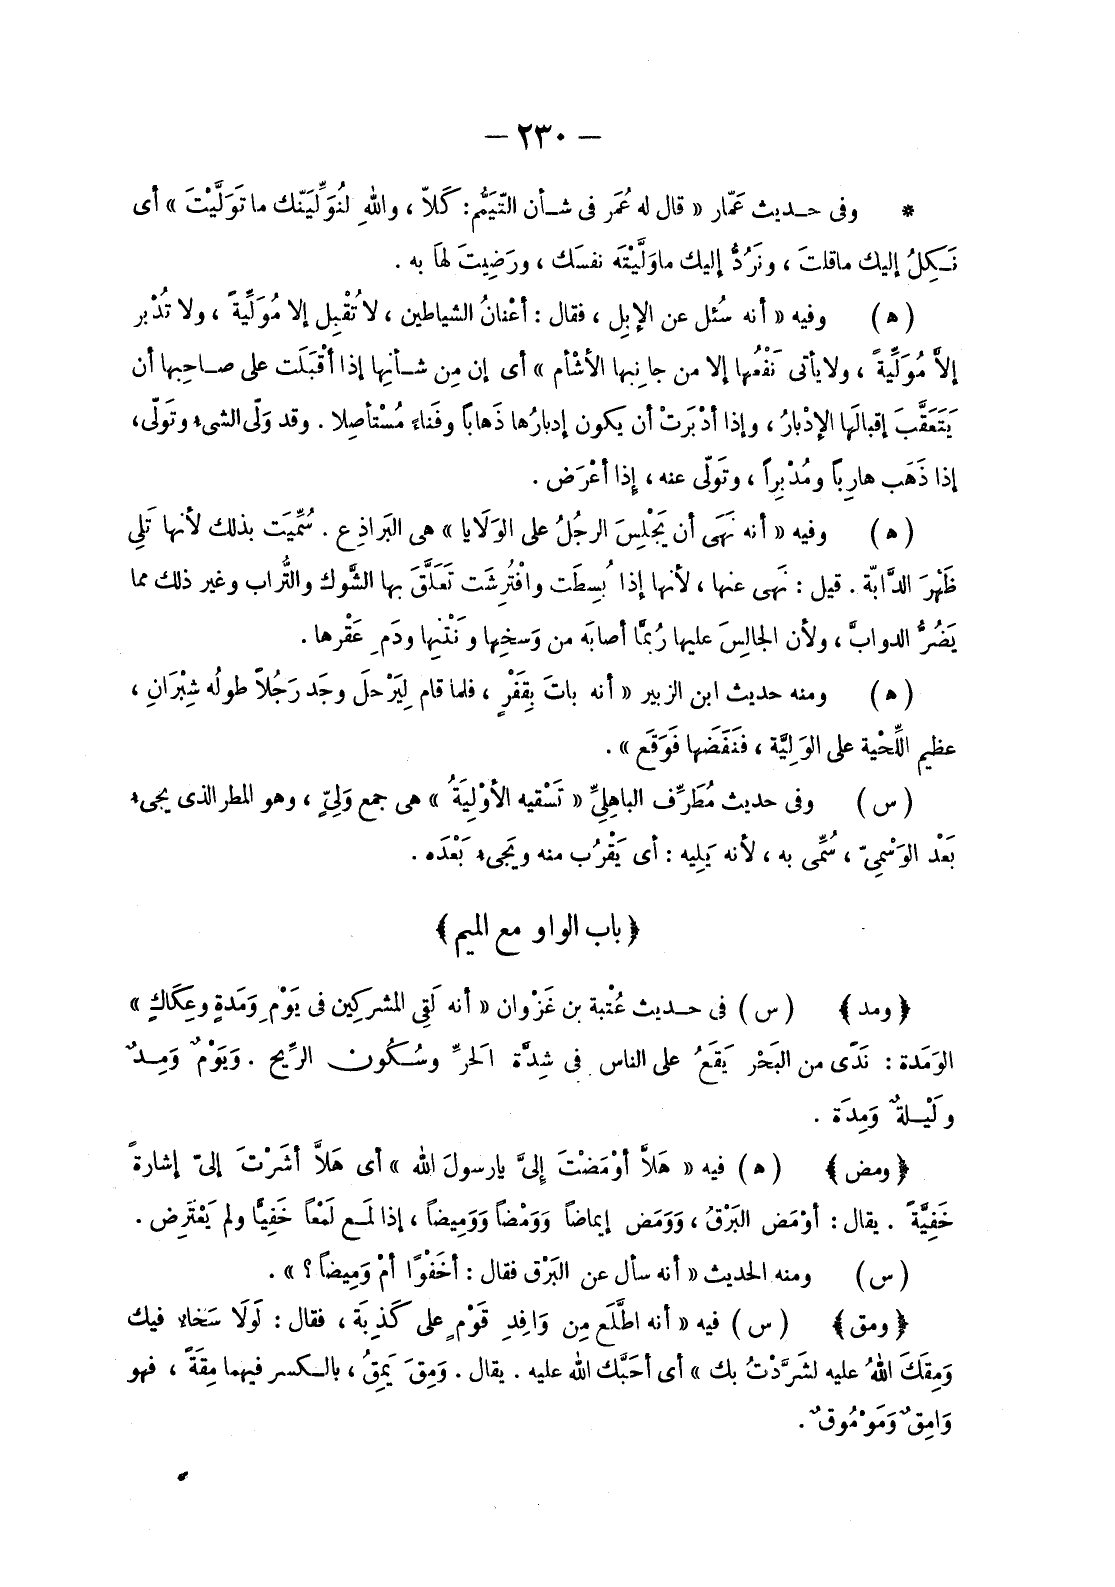 — ٢٣٠ —
* وفى حـديث عَمّار « قال له عُمَر فى شـأن التّيَمُّم: كَلاّ ، واللهِ لنُوَلِّيَنّك ما تَوَلَّيْتَ » أى
نَـكِلُ إليك ماقلتَ ، ونَرُدُّ إليك ماوَلَّيْتَه نفسَك ، ورَضِيتَ لها به .
( ه ) وفيه « أنه سُئل عن الإبِل ، فقال : أعْنانُ الشياطين ، لا تُقْبِل إلا مُوَلِّيةً ، ولا تُدْبر
إلاَّ مُوَلِّيةً ، ولا يأتى نَفْعُها إلا من جانِبها الأشْأم » أى إن مِن شـأنِها إذا أقْبَلَت على صـاحِبها أن
يَتَعَقَّبَ إقبالَها الإدْبارُ ، وإذا أدْبَرَتْ أن يكون إدبارُها ذَهاباً وفَناءً مُسْتأصِلا . وقد وَلّى الشىء وتَولّى،
إذا ذَهَب هارِباً ومُدْبِراً ، وتَولّى عنه ، إِذا أعْرَض .
( ه ) وفيه « أنه نَهَى أن يَجْلِسَ الرجُلُ على الوَلَايا » هى البَراذِع . سُمِّيَت بذلك لأنها تَلِى
ظَهْرَ الدَّابّة . قيل : نَهى عنها ، لأنها إذا بُسِطَت وافْتُرِشَت تَعَلَّقَ بها الشَّوك والتُّراب وغير ذلك مما
يَضُرُّ الدوابَّ ، ولأن الجالِسَ عليها رُبمَّا أصابَه من وَسخِها ونَتْنِها ودَم ِ عَقْرها .
( ه ) ومنه حديث ابن الزبير « أنه باتَ بِقَفْرٍ ، فلما قام لِيَرْحلَ وجَد رَجُلاً طولُه شِبْرَانِ ،
عظيم اللِّحْية على الوَلِيَّة ، فنَفَضَها فَوَقَع » .
( س ) وفى حديث مُطَرِّف الباهِلِىّ « تَسْقيه الأوْلِيَةُ » هى جمع وَلِىٍّ ، وهو المطر الذى يجىء
بَعْد الوَسْمِىّ ، سُمِّى به ، لأنه يَلِيه : أى يَقْرُب منه ويَجىء بَعْدَه .
﴿ باب الواو مع الميم ﴾
﴿ ومد ﴾ ( س ) فى حـديث عُتْبة بن غَزْوان « أنه لَقِىَ المشركِين فى يَوْمِ وَمَدةٍ وعِكَاكٍ »
الوَمَدة : نَدًى من البَحْر يَقَعُ على الناس فى شِدَّة الحَرِّ وسُـكُون الرِّيح . ويَوْمٌ وَمِـدٌ
ولَيْـلةٌ وَمِدَة .
﴿ ومض ﴾ ( ه ) فيه « هَلاَّ أوْمَضْتَ إلىَّ يارسولَ الله » أى هَلاَّ أشَرْتَ إلىّ إشارةً
خَفِيَّةً . يقال : أوْمَض البَرْقُ ، ووَمَض إيماضاً ووَمْضاً ووَمِيضاً ، إذا لمَـع لَمْعاً خَفِيًّا ولم يَعْتَرِض .
( س ) ومنه الحديث « أنه سأل عن البَرْق فقال : أخَفْوًا أمْ وَمِيضاً ؟ » .
﴿ ومق ﴾ ( س ) فيه « أنه اطَّلَع مِن وَافِدِ قَوْمٍ على كَذبَة ، فقال : لَولَا سَخاء فيك
وَمِقَكَ اللهُ عليه لشَرَّدْتُ بك » أى أحَبَّك الله عليه . يقال . وَمِقَ يَمِقُ ، بالـكسر فيهما مِقَةً ، فهو
وَامِقٌ وَمَوْمُوقٌ .